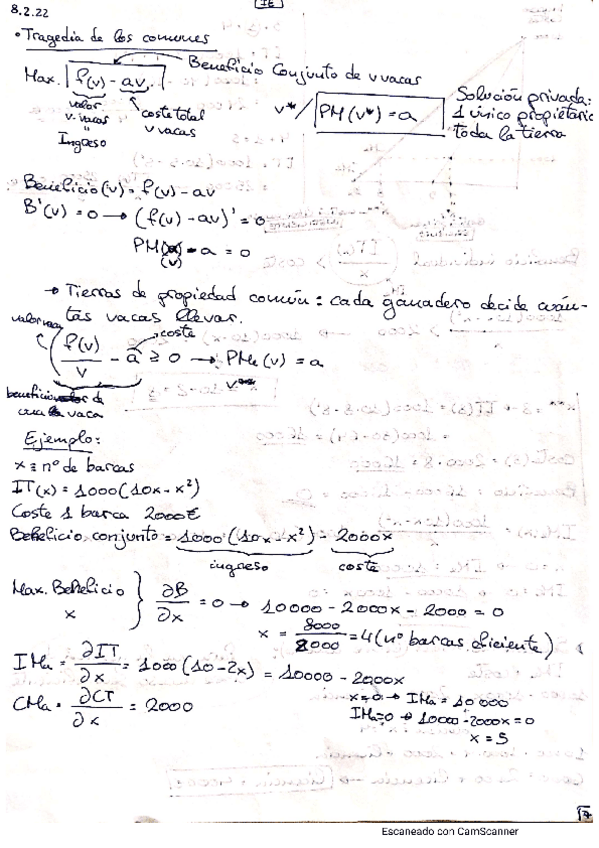 8.2.22
• Tragedia de los comunes
Beneficio Conjunto de v vacas
Max. f(v) - av.
valor v. vacas = Ingreso
coste total v vacas
v* / PM(v*) = a
Solución privada: 1 único propietario toda la tierra
Beneficio(v) = f(v) - av
B'(v) = 0 → (f(v) - av)' = 0
PM(v) - a = 0
→ Tierras de propiedad común: cada ganadero decide cuán-
tas vacas llevar.
valor vaca
coste
f(v)/v - a ≥ 0 → PMe(v) = a
v**
beneficio de
una vaca
Ejemplo:
x ≡ nº de barcas
IT(x) = 1000(10x - x²)
Coste 1 barca 2000€
Beneficio conjunto = 1000(10x - x²) - 2000x
ingreso
coste
Max. Beneficio x } ∂B/∂x = 0 → 10000 - 2000x - 2000 = 0
x = 8000/2000 = 4 (nº barcas eficiente)
IMa = ∂IT/∂x = 1000(10 - 2x) = 10000 - 2000x
CMa = ∂CT/∂x = 2000
x=0 → IMa = 10000
IMa=0 → 10000 - 2000x = 0
x = 5
Escaneado con CamScanner